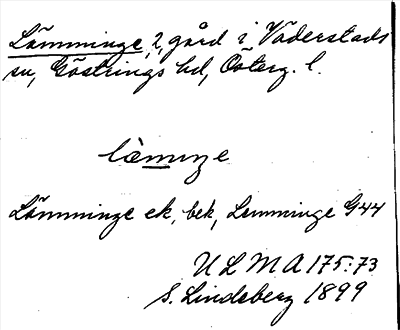 Lämminge, 2, gård i Väderstads
sn, Göstrings hd, Österg. l.
lämnge
Lämminge ek, bek, Lemminge G44
ULMA 175:73
S. Lindeberg 1899